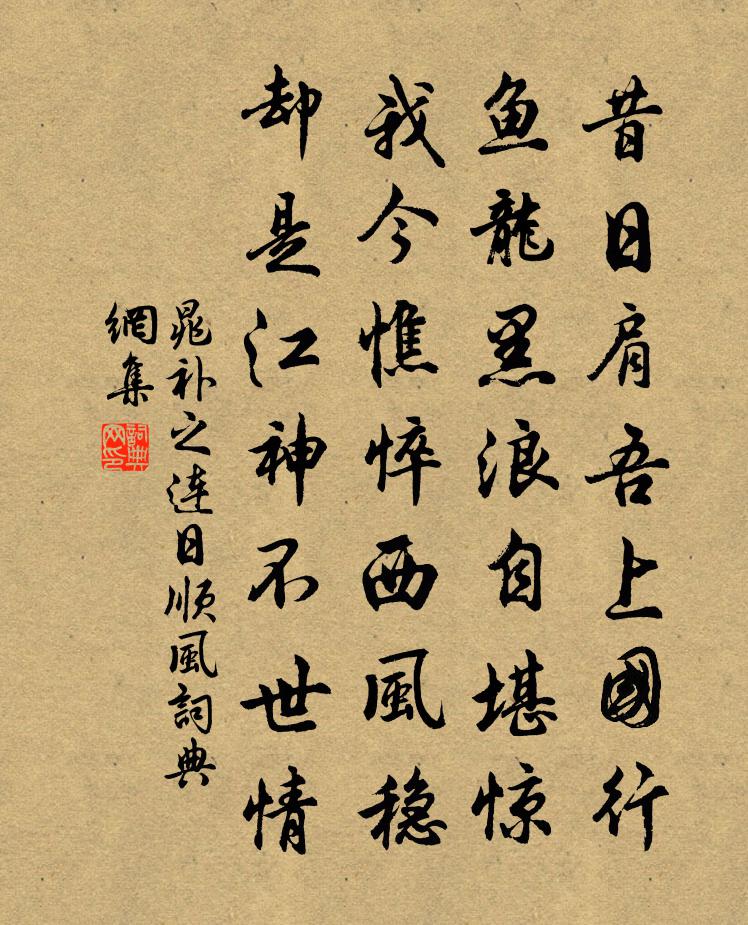 昔日肩吾上國行
鱼龍黑浪自堪惊
我今憔悴西風稳
却是江神不世情
晁补之连日順風詞典
網集
詞典网印